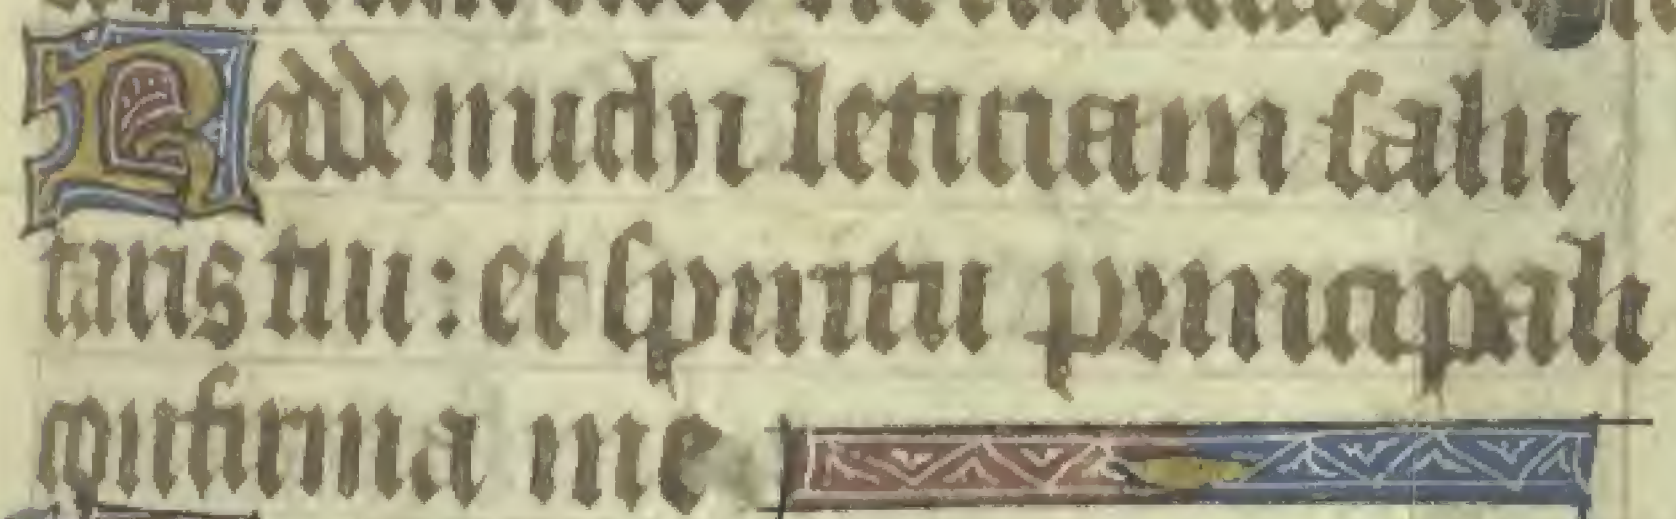 Redde michi leticiam salu
taris tui: et spiritu principali
confirma me